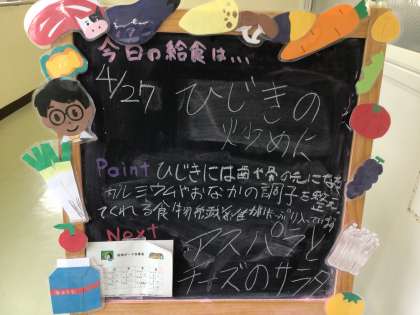 今日の給食は...
4/27
ひじきの
炒めに
Paint ひじきには歯や骨の元になる
カルシウムやおなかの調子を整え
てくれる食物繊維がたっぷり入ってい
Next アスパラと
チーズのサラダ